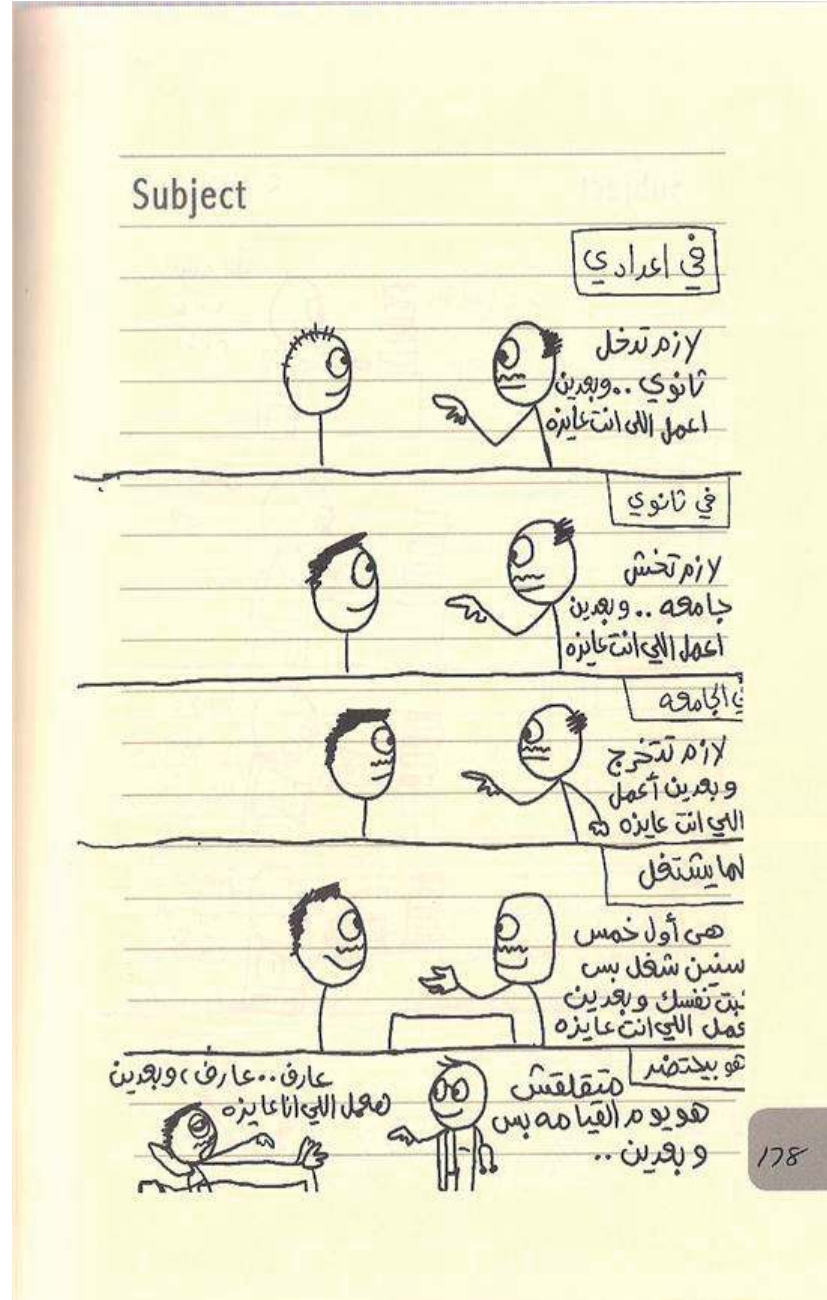 Subject
في اعدادي
لازم تدخل
ثانوي .. وبعدين
اعمل اللي انت عايزه
في ثانوي
لازم تخش
جامعه .. وبعدين
اعمل اللي انت عايزه
ي الجامعه
لازم تتخرج
وبعدين أعمل
اللي انت عايزه
لما يشتغل
هي أول خمس
سنين شغل بس
ثبت نفسك وبعدين
عمل اللي انت عايزه
هو بيحتضر
متقلقش
هو يوم القيامه بس
وبعدين ..
عارف .. عارف، وبعدين
هعمل اللي انا عايزه
178